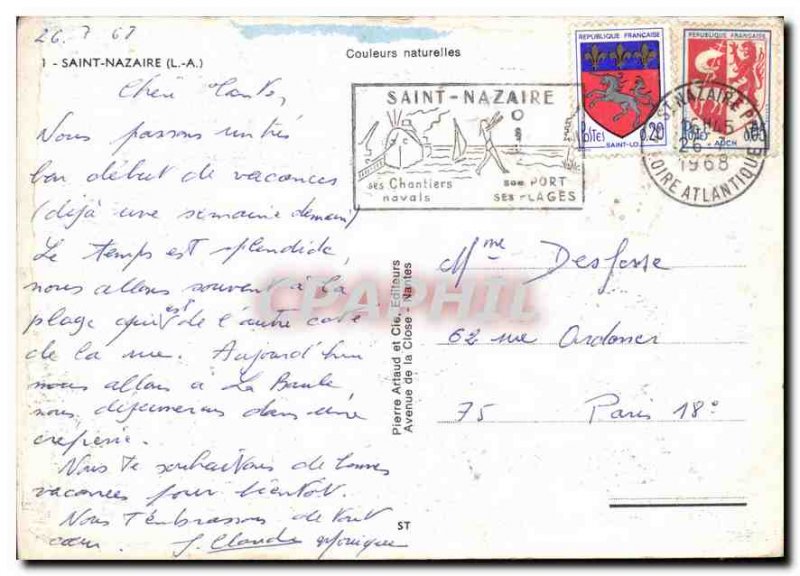 26.7 68
Couleurs naturelles
1 - SAINT-NAZAIRE (L.-A.)
Chère
Nous passons un très
bon début de vacances
(déjà une semaine demain)
Le temps est splendide,
nous allons souvent à la
plage qui est de l'autre coté
de la rue. Aujourd'hui
nous allons à La Baule
nous déjeunerons dans une
crêperie.
Nous te souhaitons de bonnes
vacances pour bientôt.
Nous t'embrassons de tout
cœur. J. Claude Monique
ST
Pierre Artaud et Cie, Editeurs
Avenue de la Close - Nantes
SAINT-NAZAIRE
ses Chantiers
navals
son PORT
SES PLAGES
REPUBLIQUE FRANÇAISE
POSTES
0.20
SAINT-LO
REPUBLIQUE FRANÇAISE
0.05
AUCH
ST NAZAIRE
26-7
1968
LOIRE ATLANTIQUE
Mme Desfosse
62 rue Ordoner
75 Paris 18e
CPAPHIL